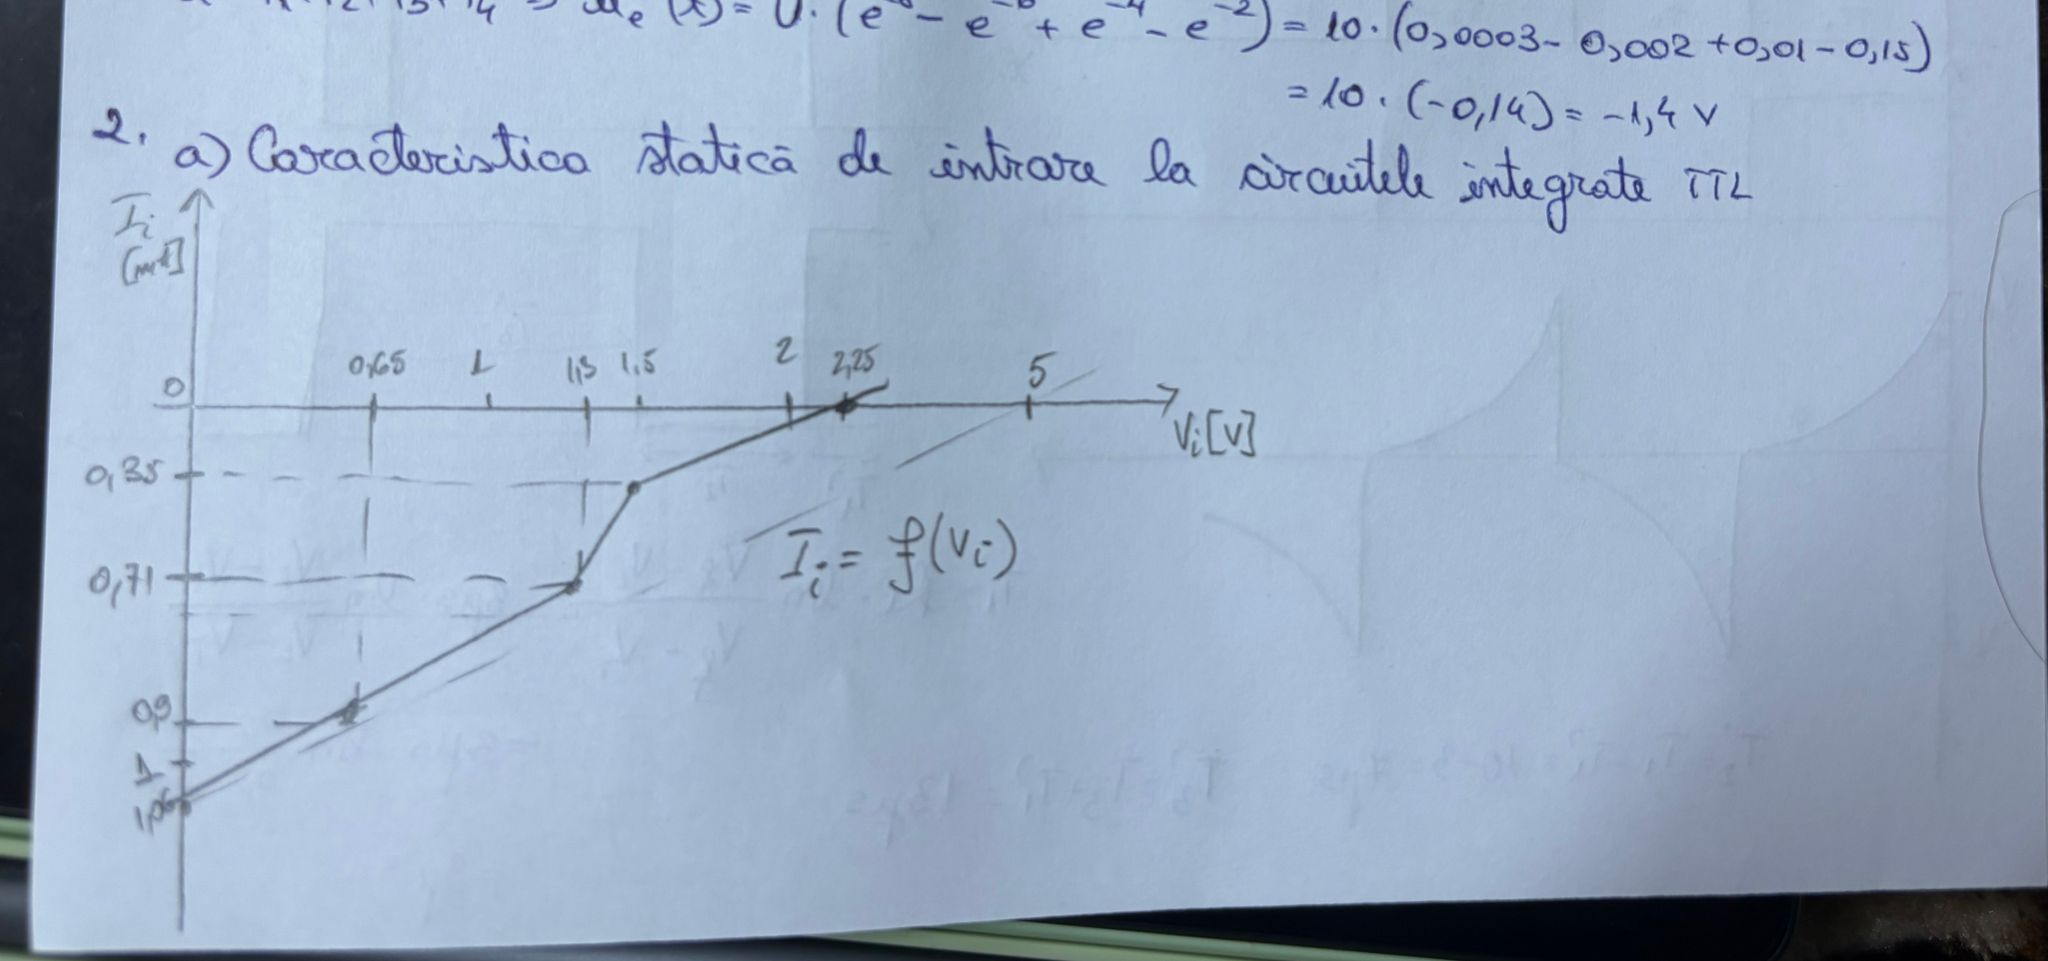 (x) = U · (e - e + e⁻⁴ - e⁻²) = 10 · (0,0003 - 0,002 + 0,01 - 0,15)
= 10 · (-0,14) = -1,4 V
2.
a) Caracteristica statică de intrare la circuitele integrate TTL
Ii
[mA]
0,65 1 1,3 1,5 2 2,25 5
0
Vi[V]
0,35
0,71
Ii = f(Vi)
0,9
1
1,06